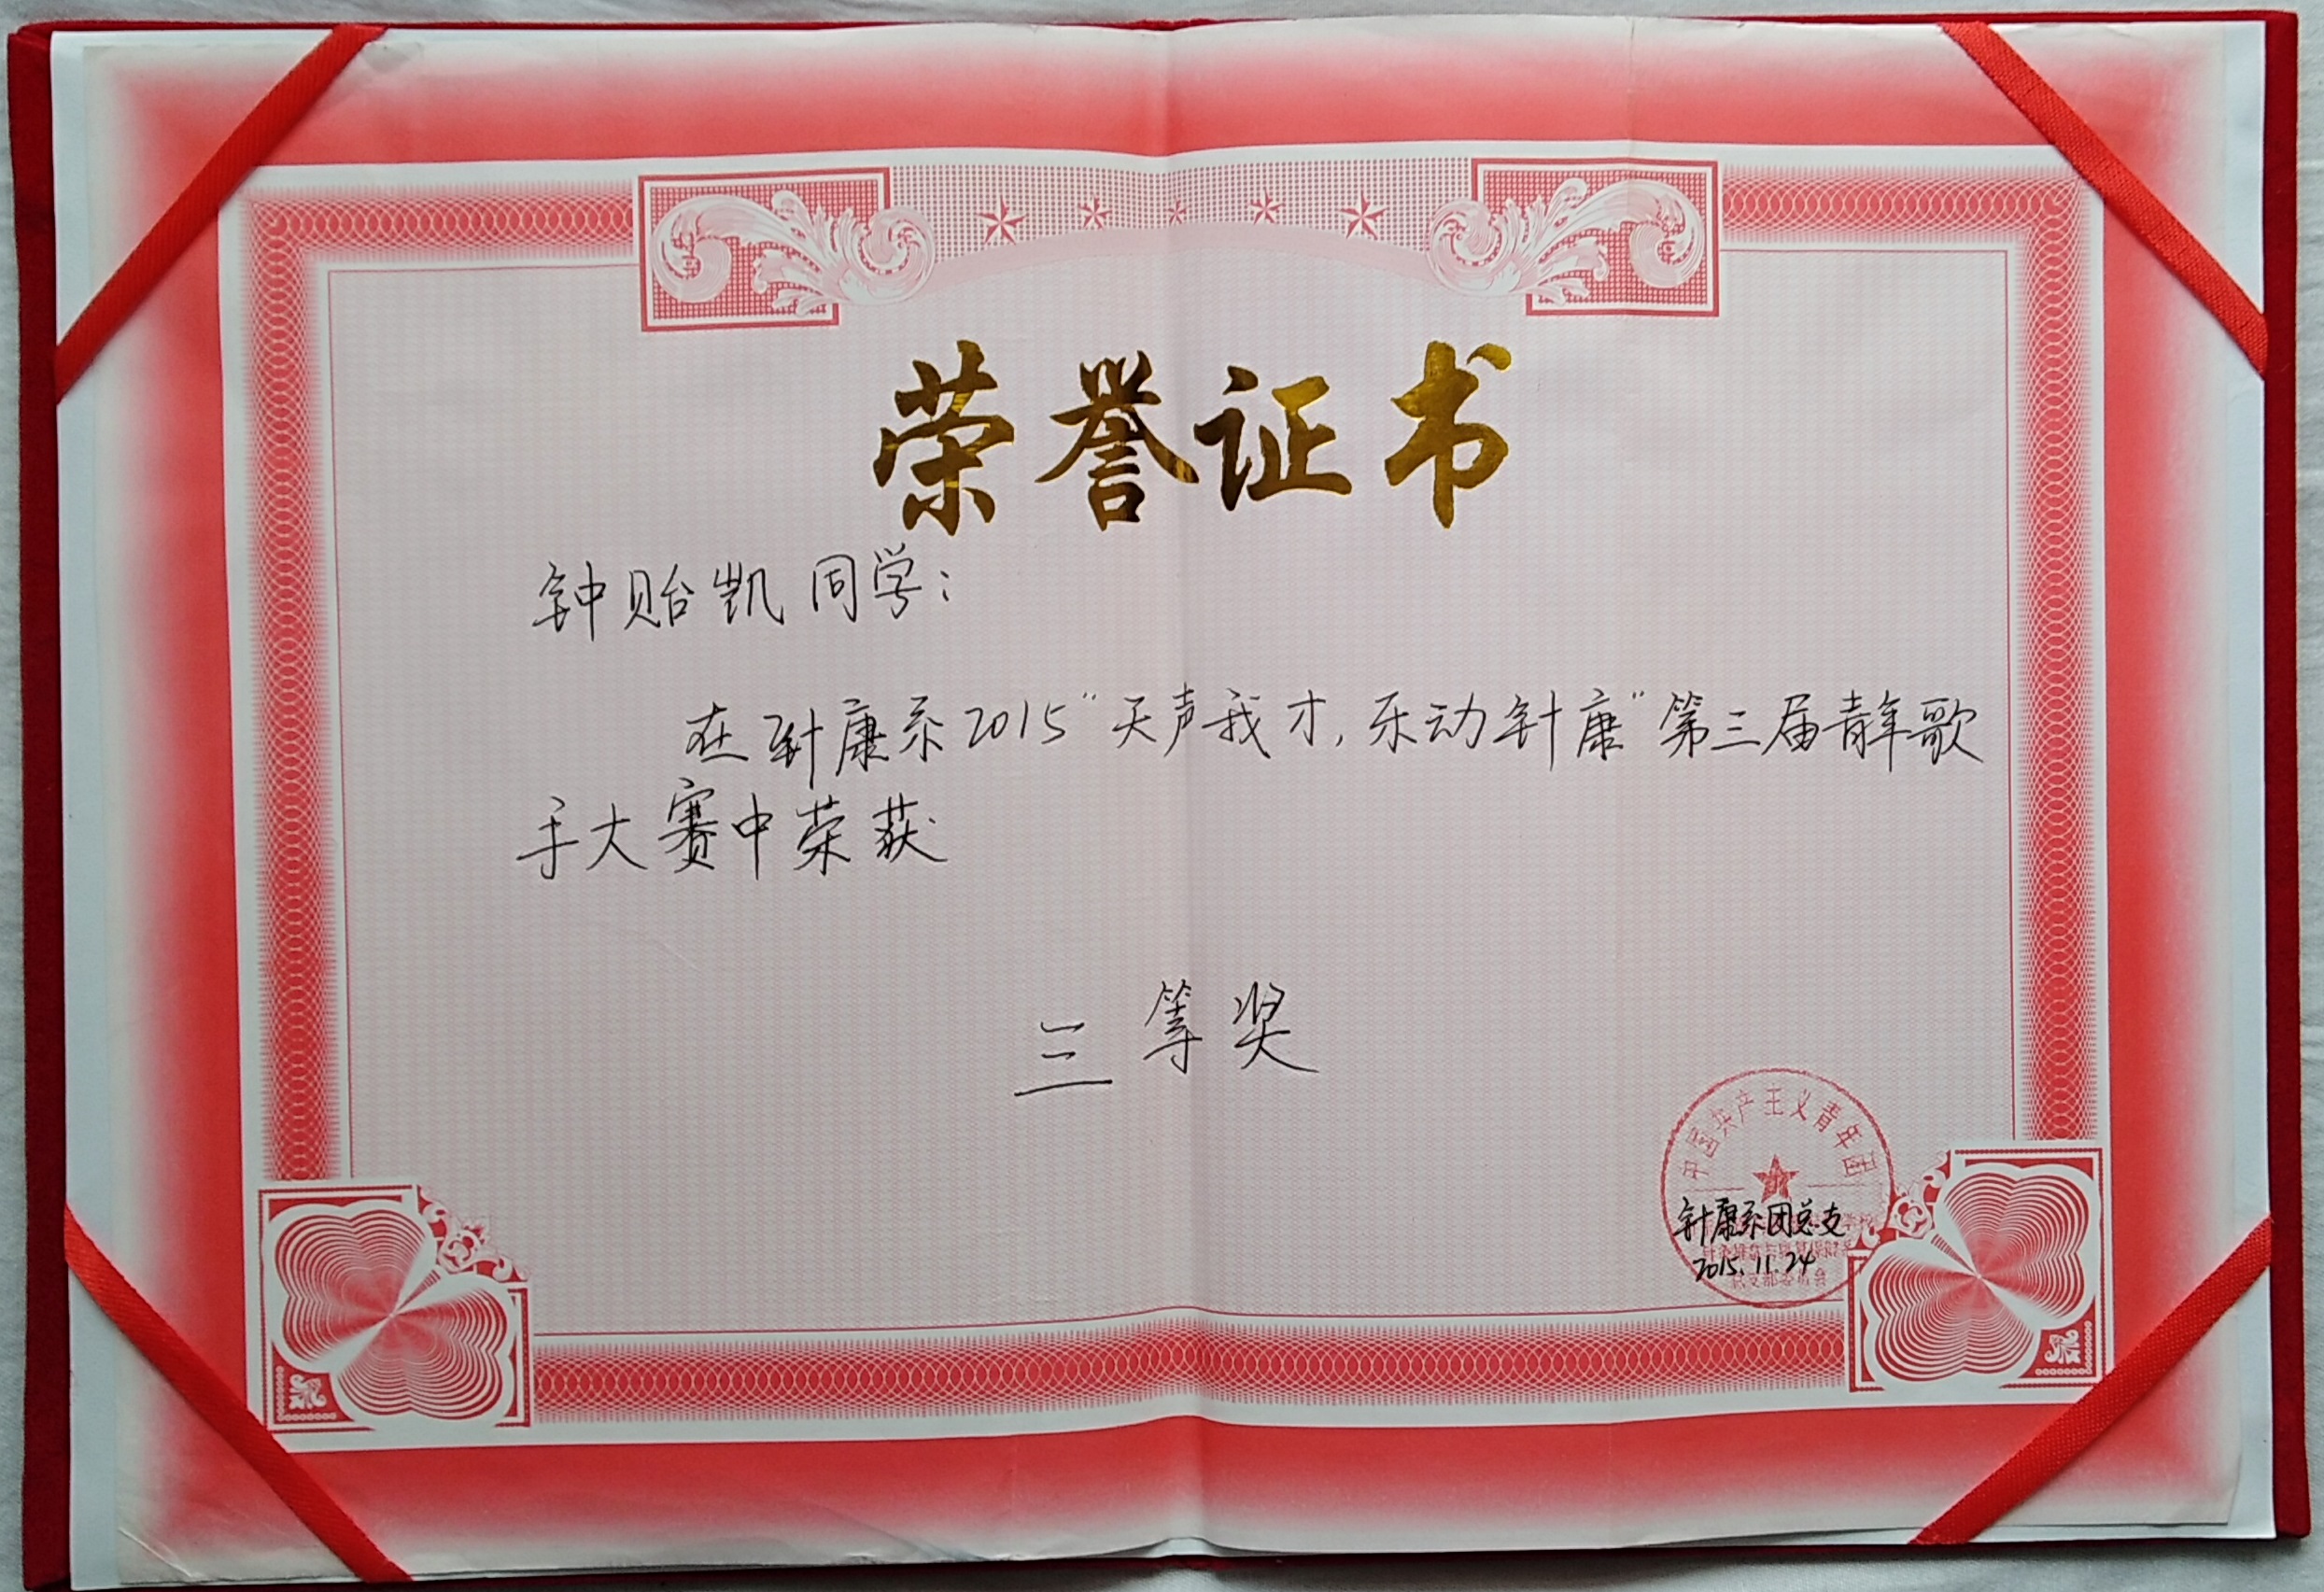 荣誉证书
钟贻凯同学：
在针康系2015“天声我才，乐动针康”第三届青年歌
手大赛中荣获
三等奖
中国共产主义青年团
针康系团总支
2015.11.24